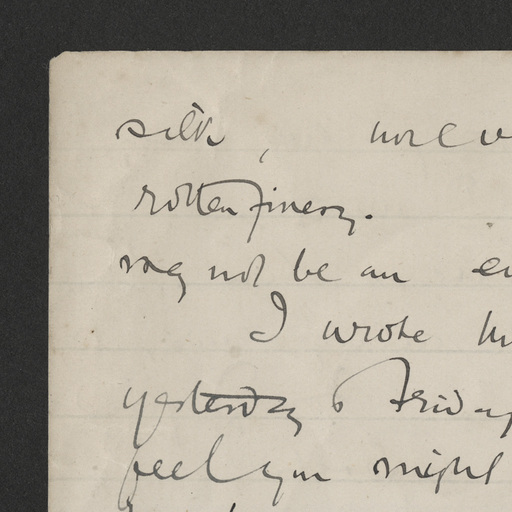 silk,
rotten finery.
may not be an
I wrote
yesterday & Friday
feel you might